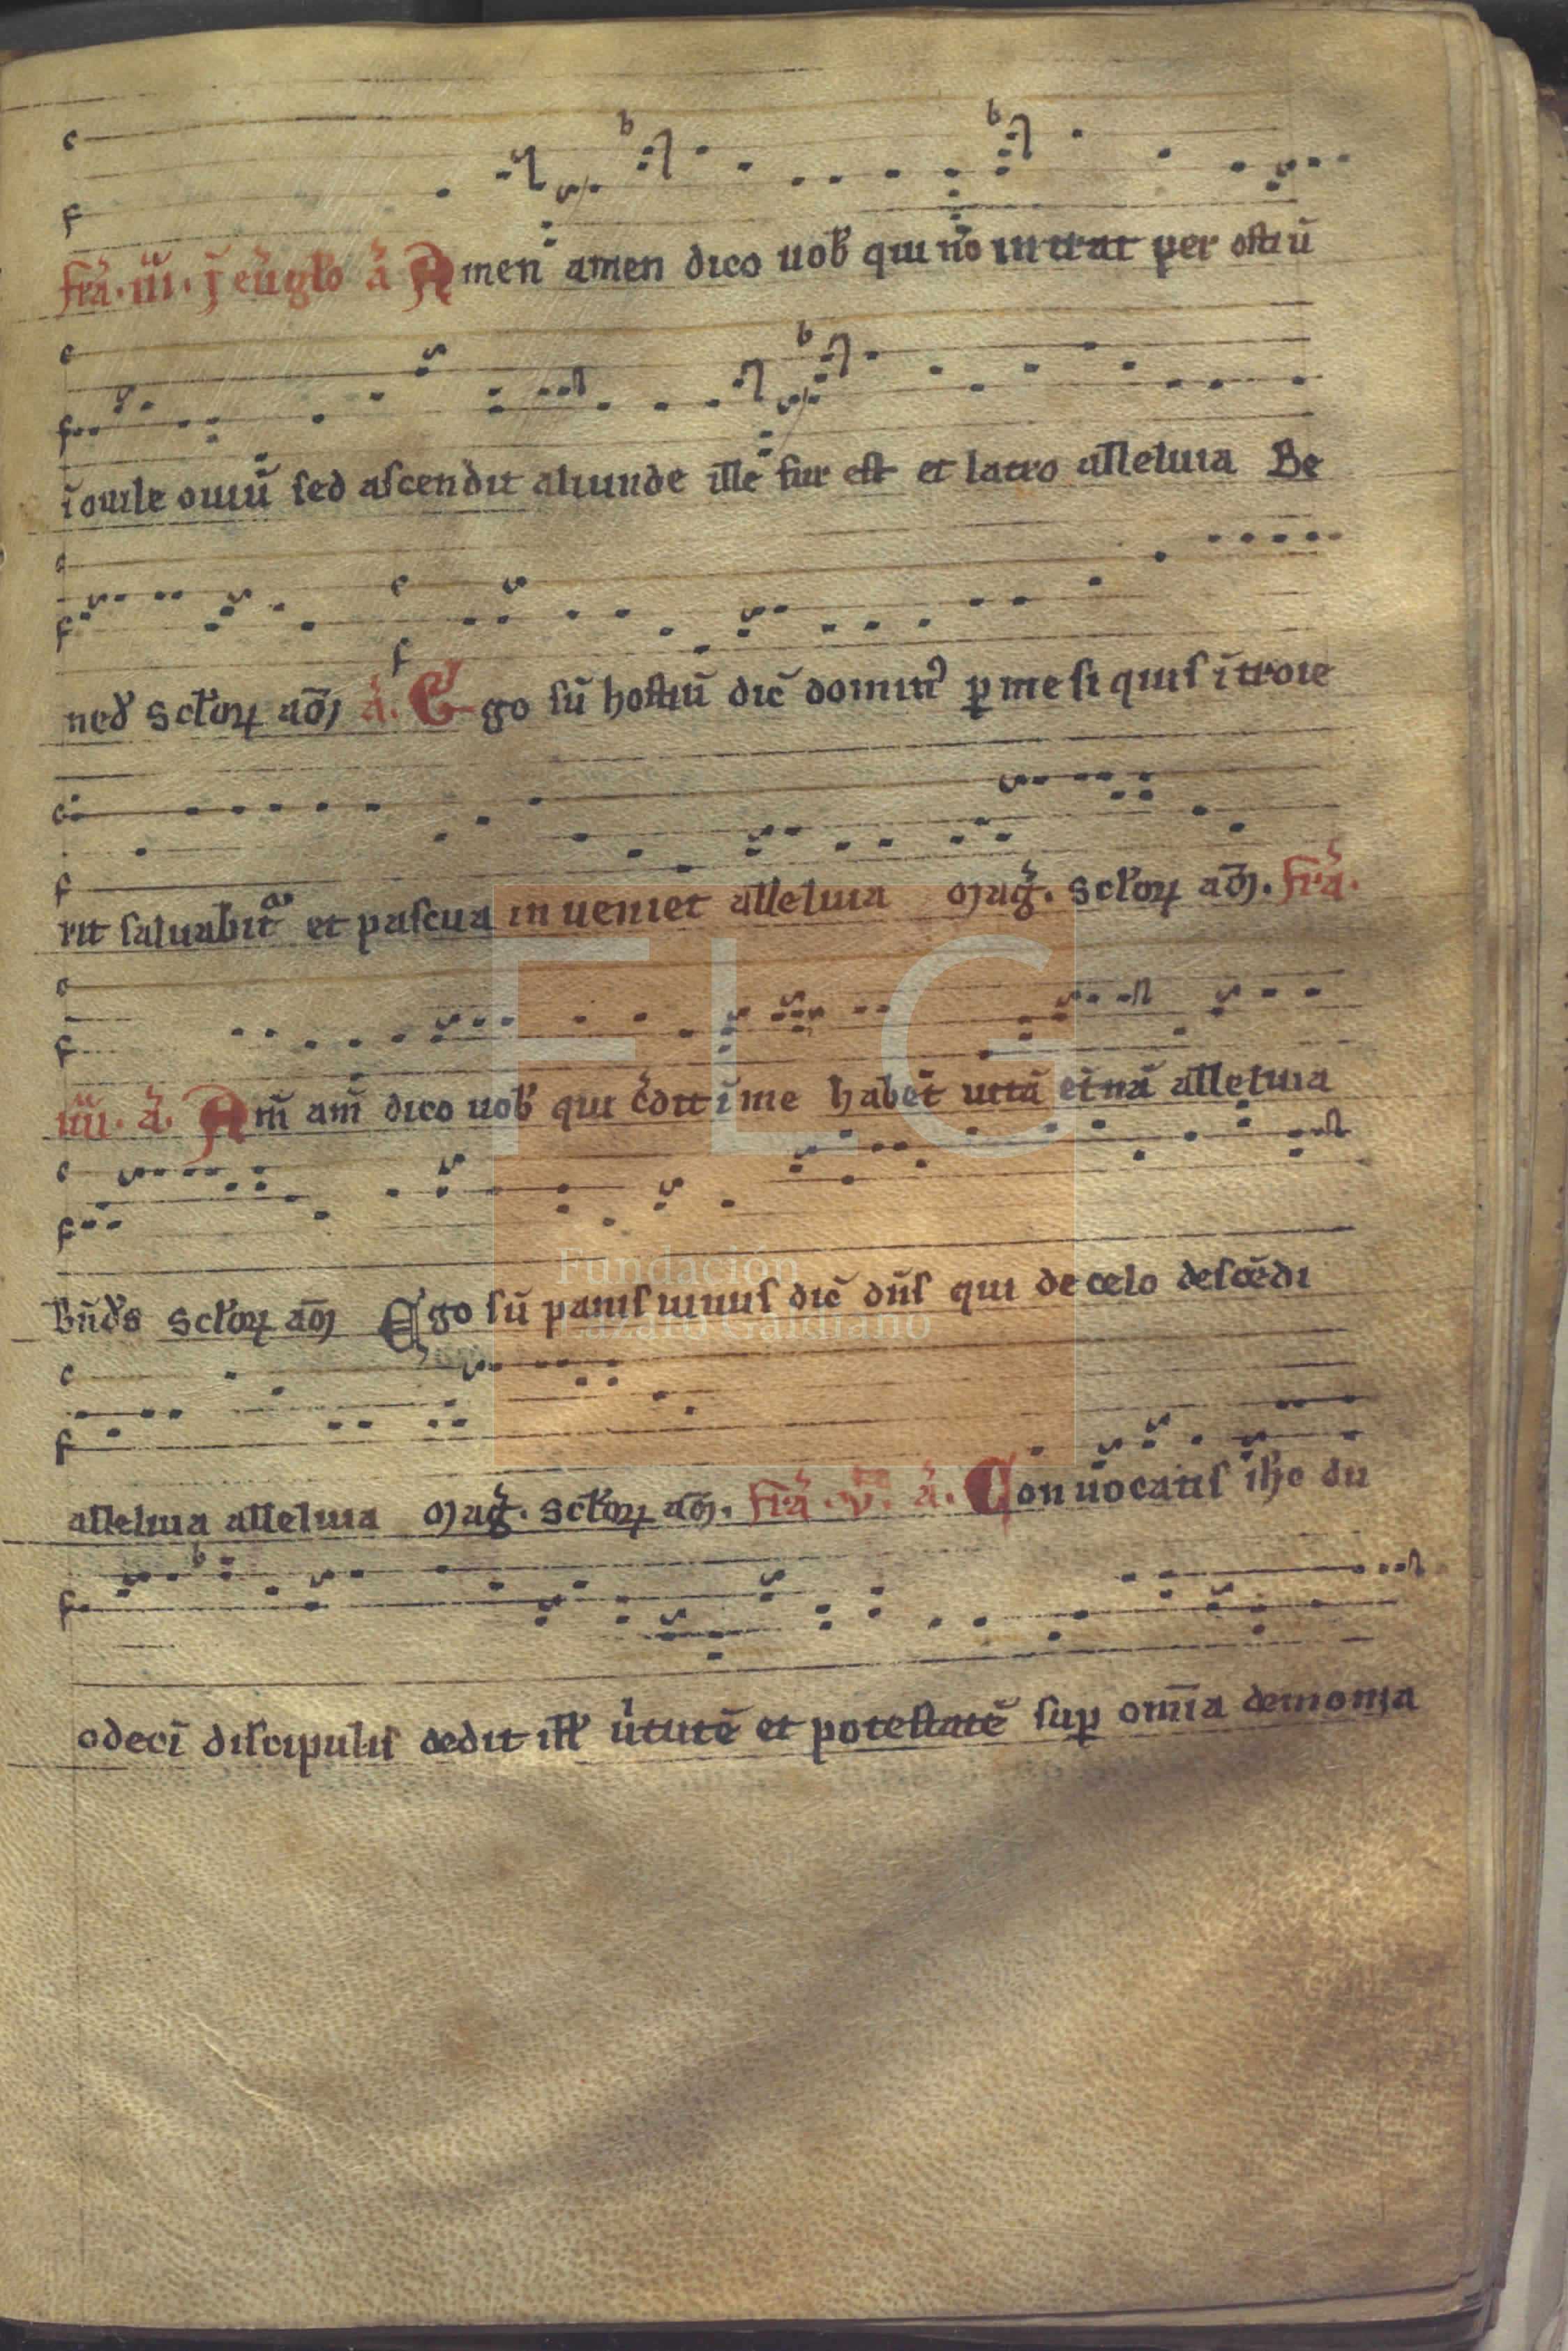 fr̃a · iii · ĩ eũglo ã Amen amen dico uob̾ qui nõ intrat per ostiũ
ĩ ouile ouiũ sed ascendit aliunde ille fur est et latro alleluia Be
ned̾ sc̾toꝝ aõꝫ ã. Ego sũ hostiũ dic̃ domin᷒ ꝑ me si quis ĩtroie
rit saluabit᷑ et pascua inueniet alleluia Mag̃. sc̾toꝝ aõꝫ. fr̃a.
iiii. ã. Am̃ am̃ dico uob̾ qui c̾dit ĩ me habet̃ uitã et̃nã alleluia
Bñd̾s sc̾toꝝ aõꝫ Ego sũ panis uiuus dic̃ dñs qui de celo descẽdi
alleluia alleluia Mag̃. sc̾toꝝ aõꝫ. fr̃a. v. ã. Conuocatis ih̾c du
odeci᷑ discipulis dedit ill̾ ũtutẽ et potestatẽ suꝑ om̃ia demonia
FLG
Fundación
Lázaro Galdiano